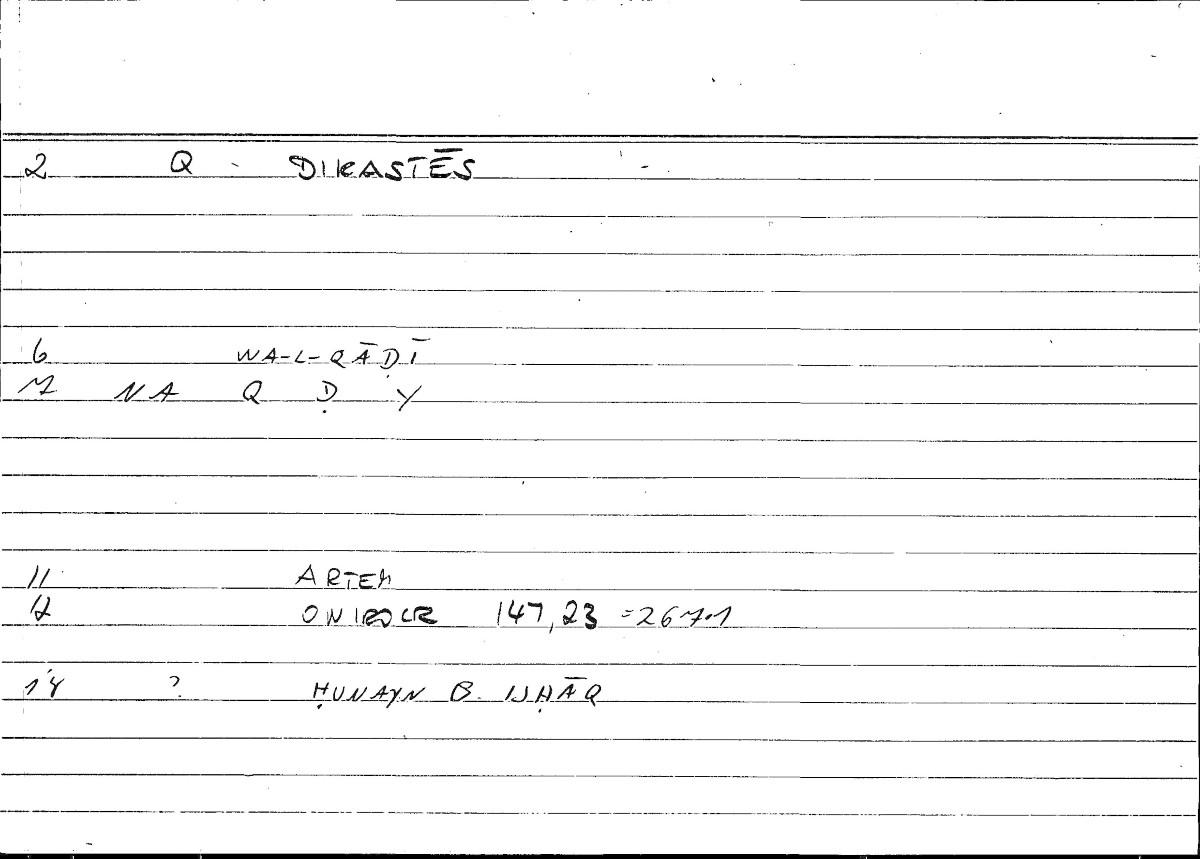 2 Q - DIKASTĒS -
6 WA-L-QĀḌĪ
7 NA Q Ḍ Y
11 ARTEM
12 ONIROCR 147,23 = 267.1
14 ? ḤUNAYN B. ISḤĀQ